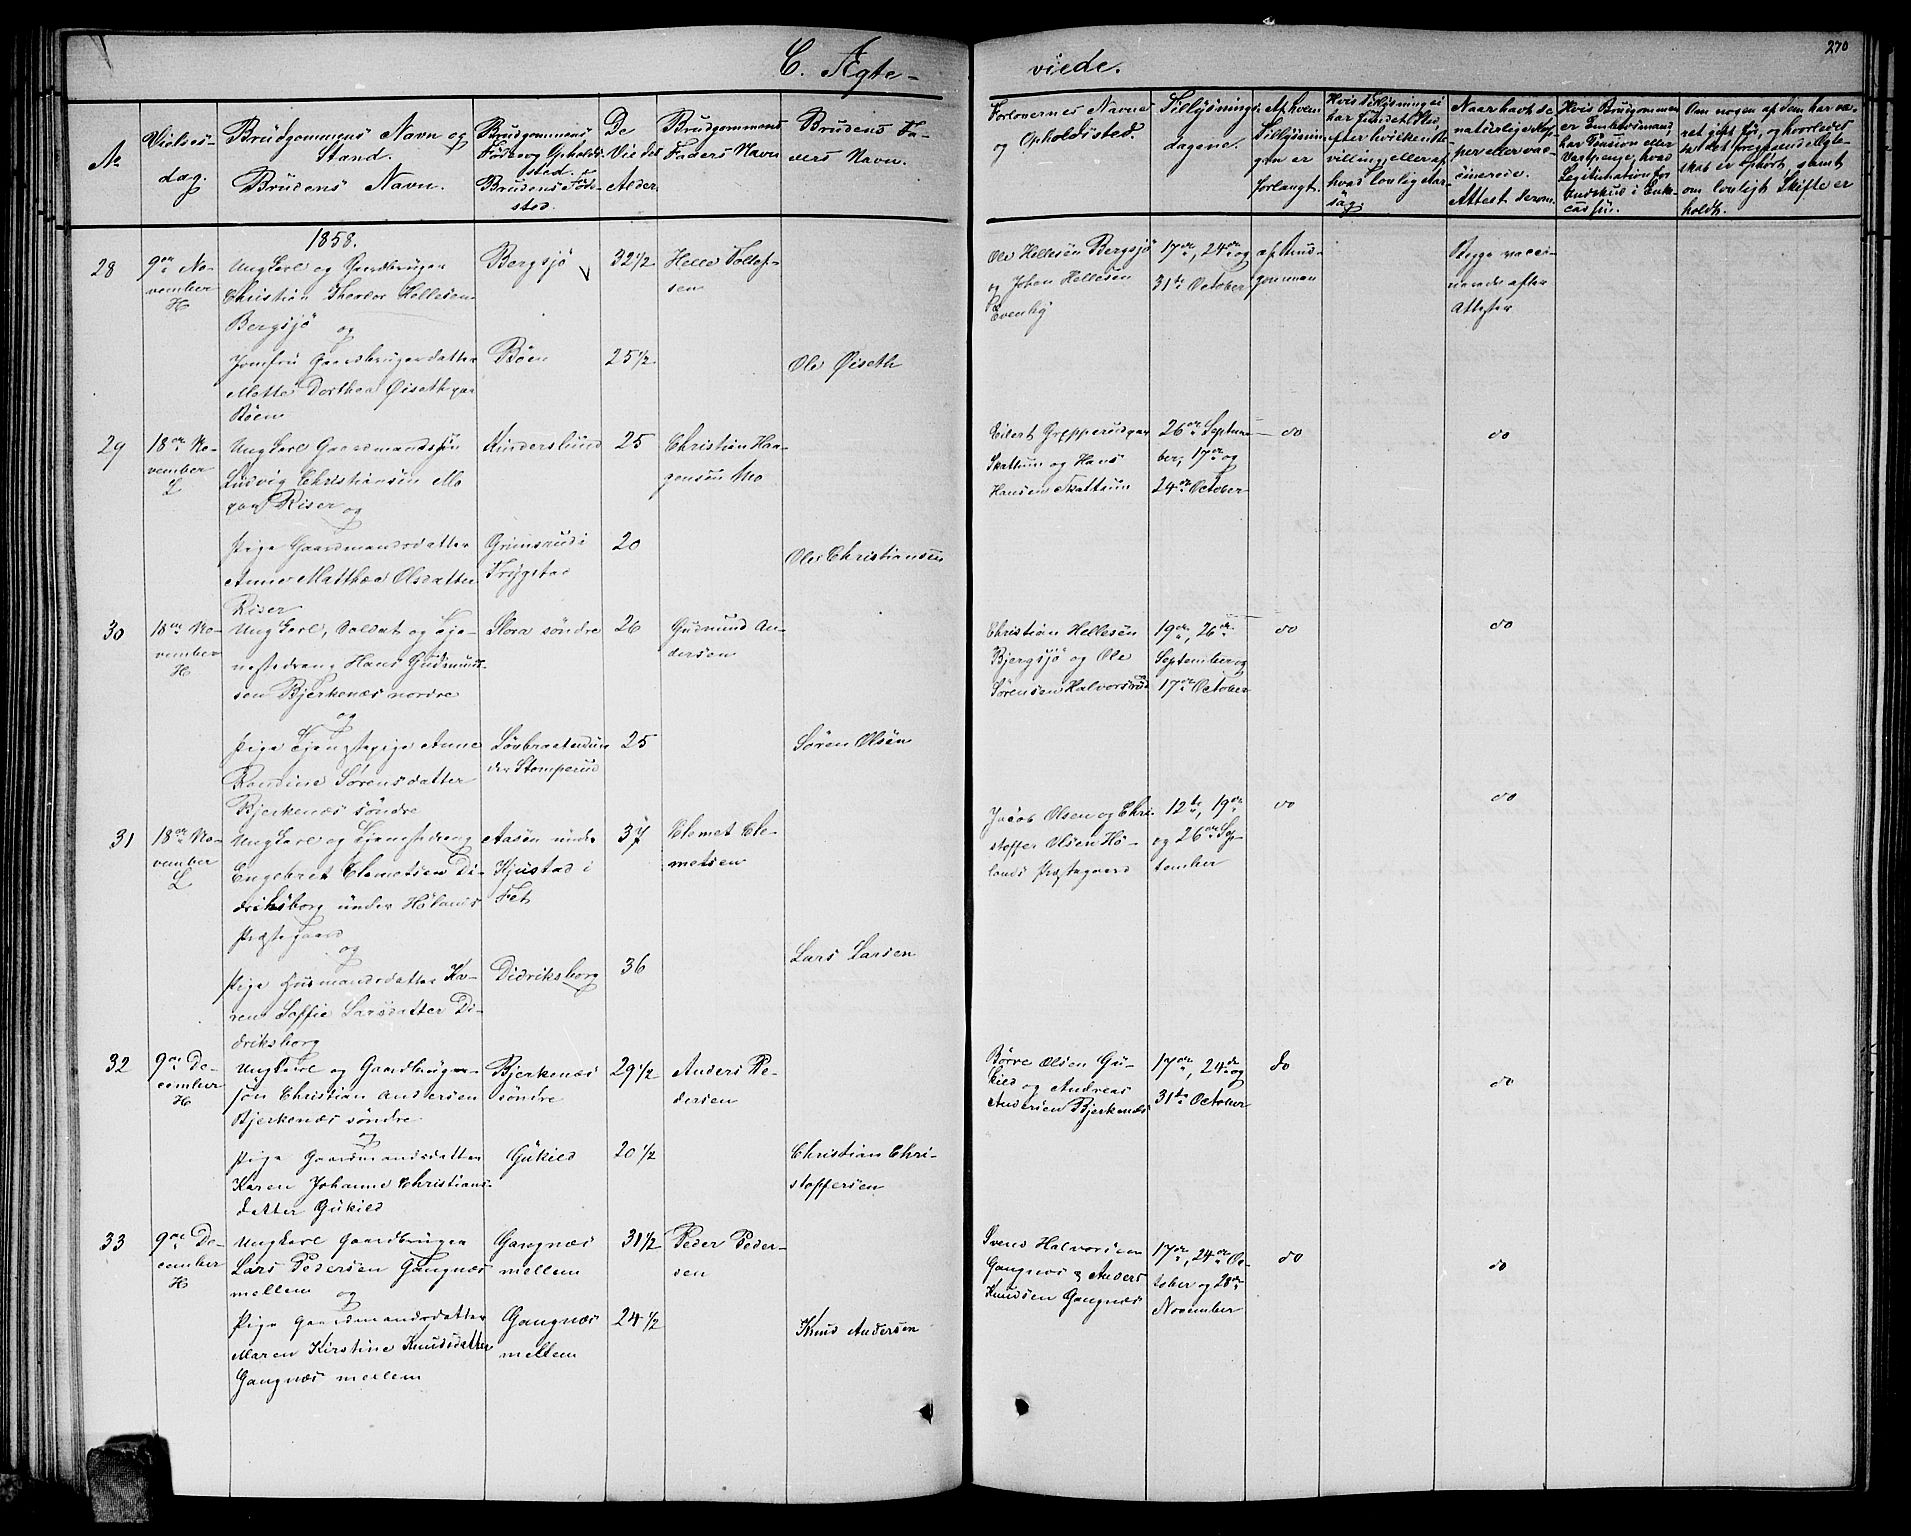 270
C. Ægte-
viede.
No
Vielses-
dag.
Brudgommens Navn og
Stand.
Brudens Navn.
Brudgommens
Føde og Opholds
sted.
Brudens Føde-
sted
De
Viedes
Alder
Brudgommens
Faders Navn
Brudens Fa-
ders Navn.
Forlovernes Navne
og Opholdssted.
Tillysnings-
dagene.
Af hvem
Tillysnin-
gen er
forlangt.
Hvis Tillysning ei
har fundet Sted,
efter hvilken Be-
villing eller af
hvad lovlig Aar-
sag.
Naar havt de
naturlige Kop-
per eller vac-
cinerede.
Attest derom.
Hvis Brudgommen
er Embedsmand,
har Pension eller
Vartpenge, hvad
Legitimation for
Indskud i Enke-
cassen.
Om nogen af dem har væ-
ret gift før, og hvorledes
det foregaaende Ægte-
skab er ophørt, samt
om lovligt Skifte er
holdt.
1858.
28
9de No-
vember
H
Ungkarl og Gaardbruger
Christian Thorvor Hellesen
Bergsjö
og
Jomfru Gaardbrugerdatter
Mette Dorthea Øiseth paa
Böen
Bergsjö
Böen
32 1/2
25 1/2
Helle Tollef-
sen
Ole Øiseth
Ole Hellesen Bergsjö
og Johan Hellesen
Evenby
17de, 24de og
31te October
af Brud-
gommen
Begge vacci-
nerede efter
Attester
29
18de No-
vember
L
Ungkarl Gaardmandssön
Ludvig Christiansen Mo
paa Riser og
Pige Gaardmandsdatter
Anne Mathea Olsdatter
Riser
Kinderslund
Grinsrud i
Trygstad
25
20
Christian Haa-
gensen Mo
Ole Christiansen
Eilert Grepperud paa
Skattum og Hans
Hansen Skattum
26de Septem-
ber, 17de og
24de October
do
do
30
18de No-
vember
H
Ungkarl, Soldat og Tje-
nestedreng Hans Gudmund-
sen Bjerkenæs nordre
og
Pige Tjenestepige Anne
Randine Sörensdatter
Bjerkenæs söndre
Slora söndre
Lövbraaten un-
der Stomperud
26
25
Gudmund An-
dersen
Sören Olsen
Christian Hellesen
Bjergsjö og Ole
Sörensen Halvorsrud
19de, 26de
September og
17de October
do
do
31
18de No-
vember
L
Ungkarl og Tjenestedreng
Engebret Clemetsen Di-
driksborg under Hölands
Præstegaard
og
Pige Husmandsdatter Ka-
ren Soffie Larsdatter Di-
driksborg
Aasen under
Kjustad i
Fet
Didriksborg
37
36
Clemet Cle-
metsen
Lars Larsen
Jacob Olsen og Chri-
stoffer Olsen Hö-
lands Præstegaard
12te, 19de
og 26de Sep-
tember
do
do
32
9de De-
cember
H
Ungkarl og Gaardbruger-
sön Christian Andersen
Bjerkenæs söndre
og
Pige Gaardmandsdatter
Karen Johanne Christians-
datter Gukild
Bjerkenæs
söndre
Gukild
29 1/2
20 1/2
Anders Pe-
dersen
Christian Chri-
stoffersen
Börre Olsen Gu-
kild og Andreas
Andersen Bjerkenæs
17de, 24de og
31te October
do
do
33
9de De-
cember
H
Ungkarl Gaardbruger
Lars Pedersen Gangnæs
mellem og
Pige Gaardmandsdatter
Maren Kirstine Knudsdatter
Gangnæs mellem
Gangnæs
mellem
Gangnæs
mellem
31 1/2
24 1/2
Peder Peder-
sen
Knud Andersen
Svend Halvorsen
Gangnæs og Anders
Knudsen Gangnæs
17de, 24de Oc-
tober og 28de
November
do
do